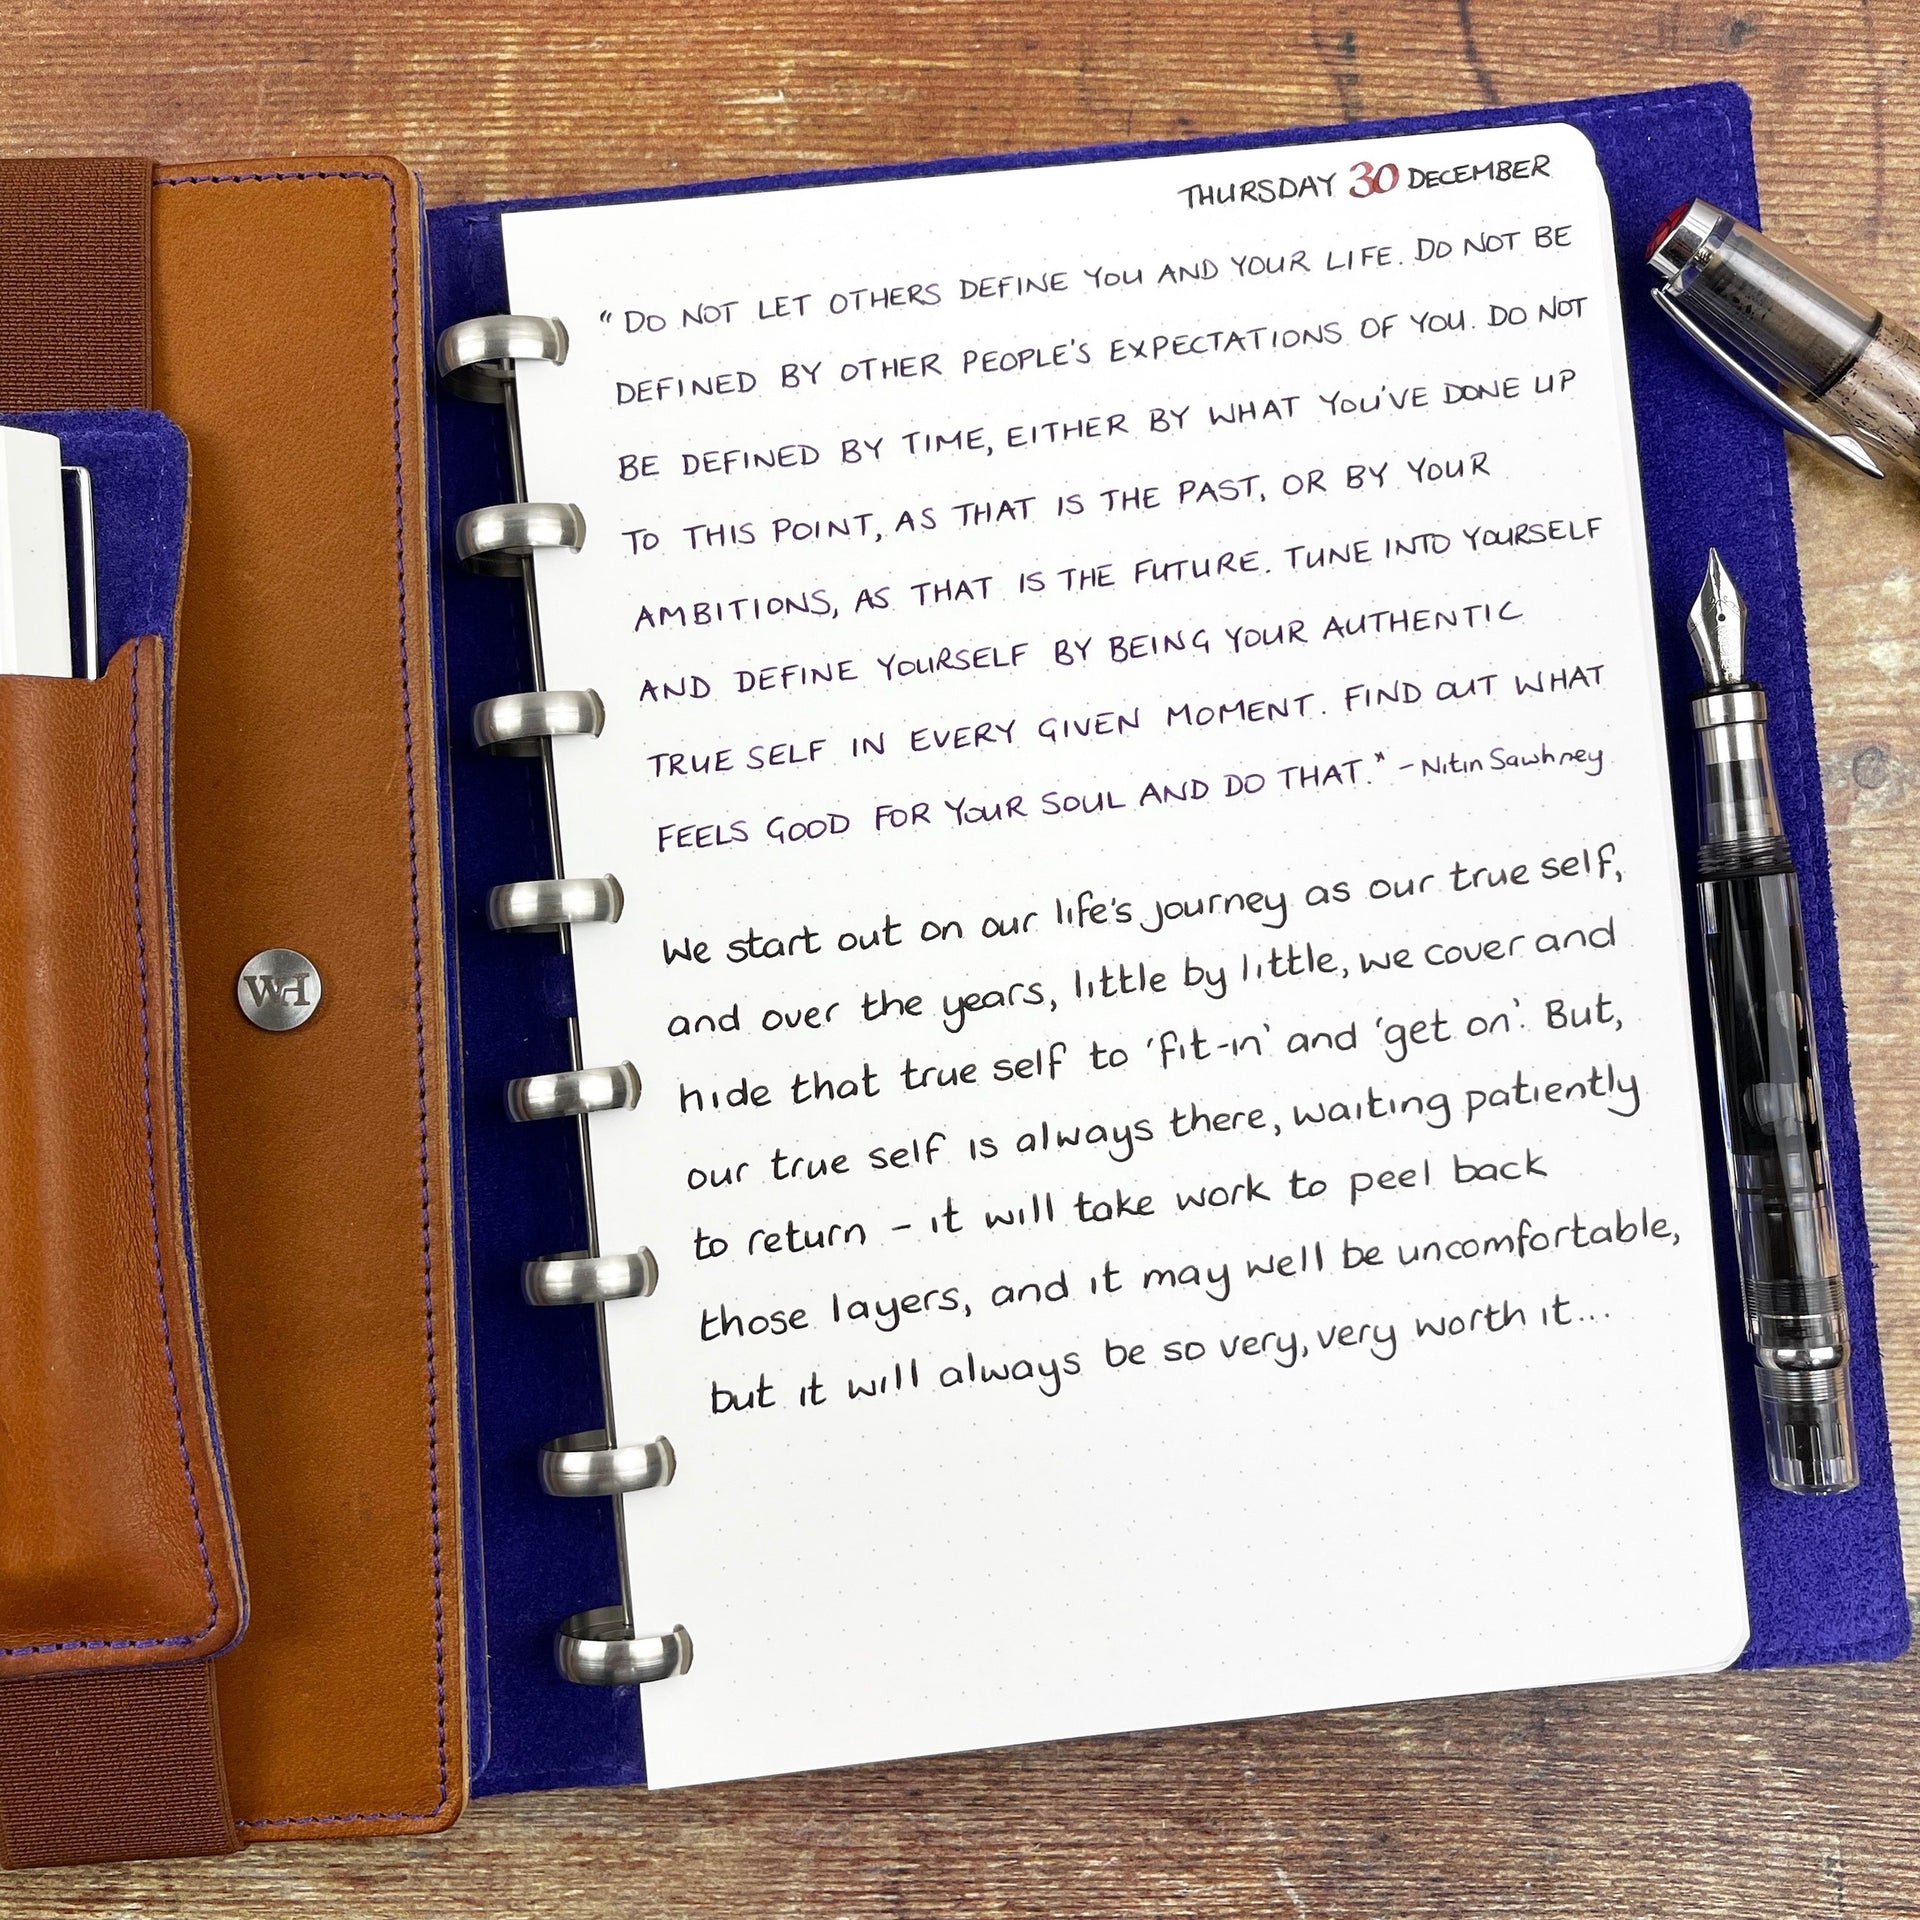 THURSDAY 30 DECEMBER
"DO NOT LET OTHERS DEFINE YOU AND YOUR LIFE. DO NOT BE
DEFINED BY OTHER PEOPLE'S EXPECTATIONS OF YOU. DO NOT
BE DEFINED BY TIME, EITHER BY WHAT YOU'VE DONE UP
TO THIS POINT, AS THAT IS THE PAST, OR BY YOUR
AMBITIONS, AS THAT IS THE FUTURE. TUNE INTO YOURSELF
AND DEFINE YOURSELF BY BEING YOUR AUTHENTIC
TRUE SELF IN EVERY GIVEN MOMENT. FIND OUT WHAT
FEELS GOOD FOR YOUR SOUL AND DO THAT." - Nitin Sawhney
We start out on our life's journey as our true self,
and over the years, little by little, we cover and
hide that true self to 'fit-in' and 'get on'. But,
our true self is always there, waiting patiently
to return - it will take work to peel back
those layers, and it may well be uncomfortable,
but it will always be so very, very worth it...
WH